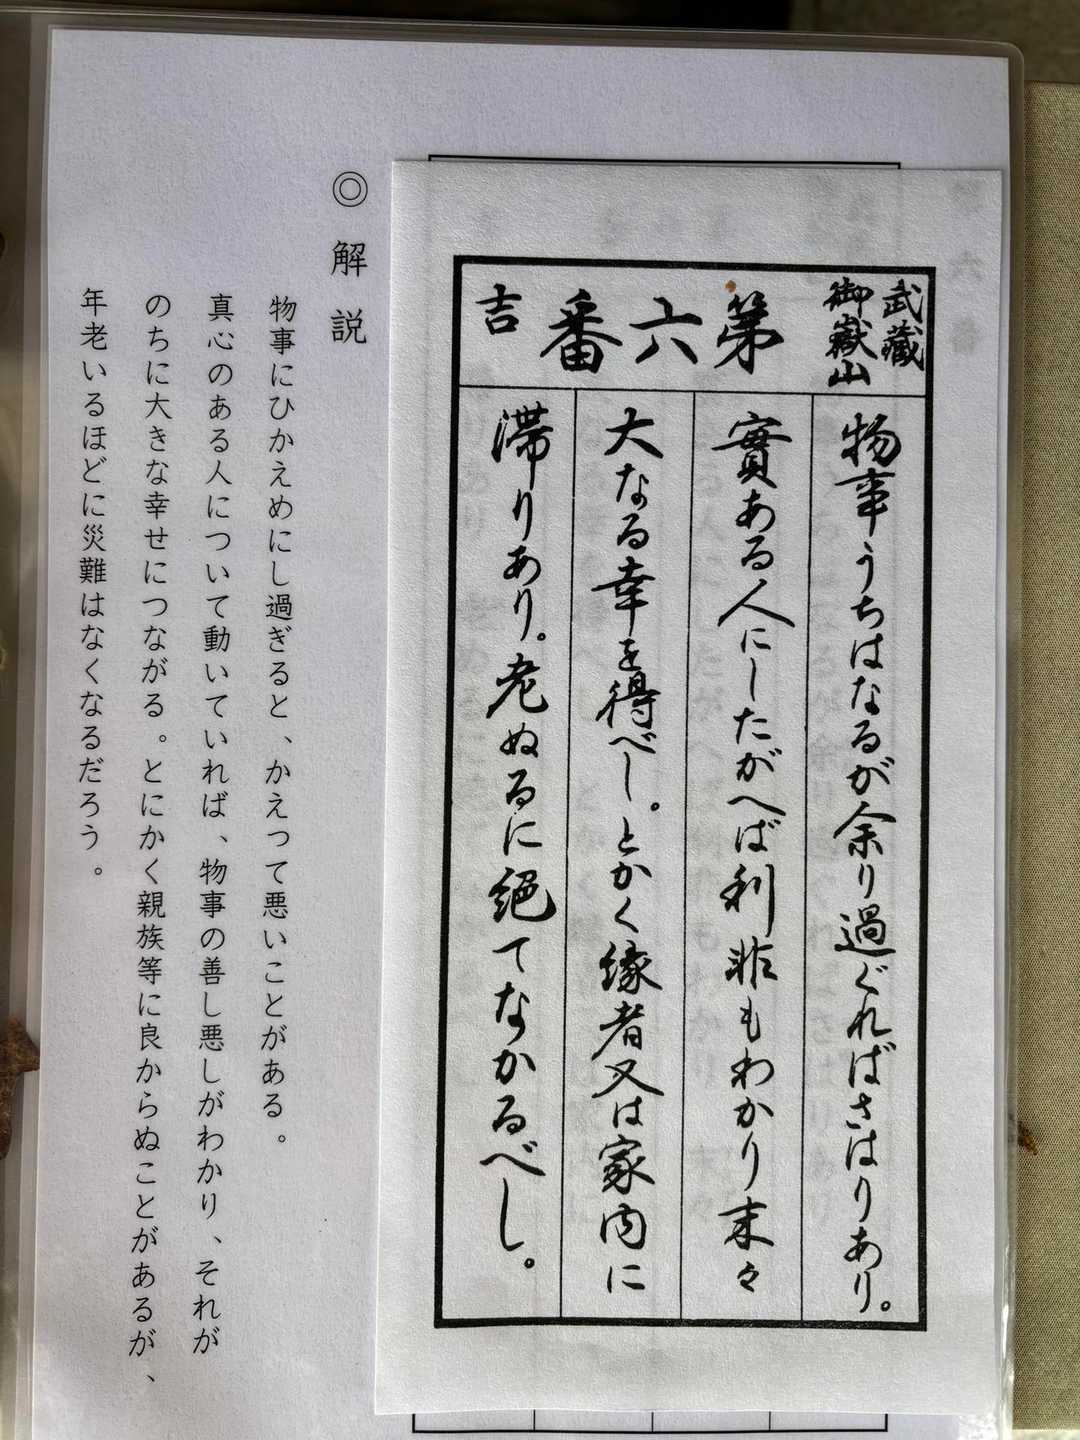 武蔵
御嶽山
第六番
吉
物事うちはなるが余り過ぐればさはりあり。
實ある人にしたがへば利非もわかり末々
大なる幸を得べし。とかく縁者又は家内に
滞りあり。老ぬるに絶てなかるべし。
◎解説
物事にひかえめにし過ぎると、かえって悪いことがある。
真心のある人について動いていれば、物事の善し悪しがわかり、それが
のちに大きな幸せにつながる。とにかく親族等に良からぬことがあるが、
年老いるほどに災難はなくなるだろう。